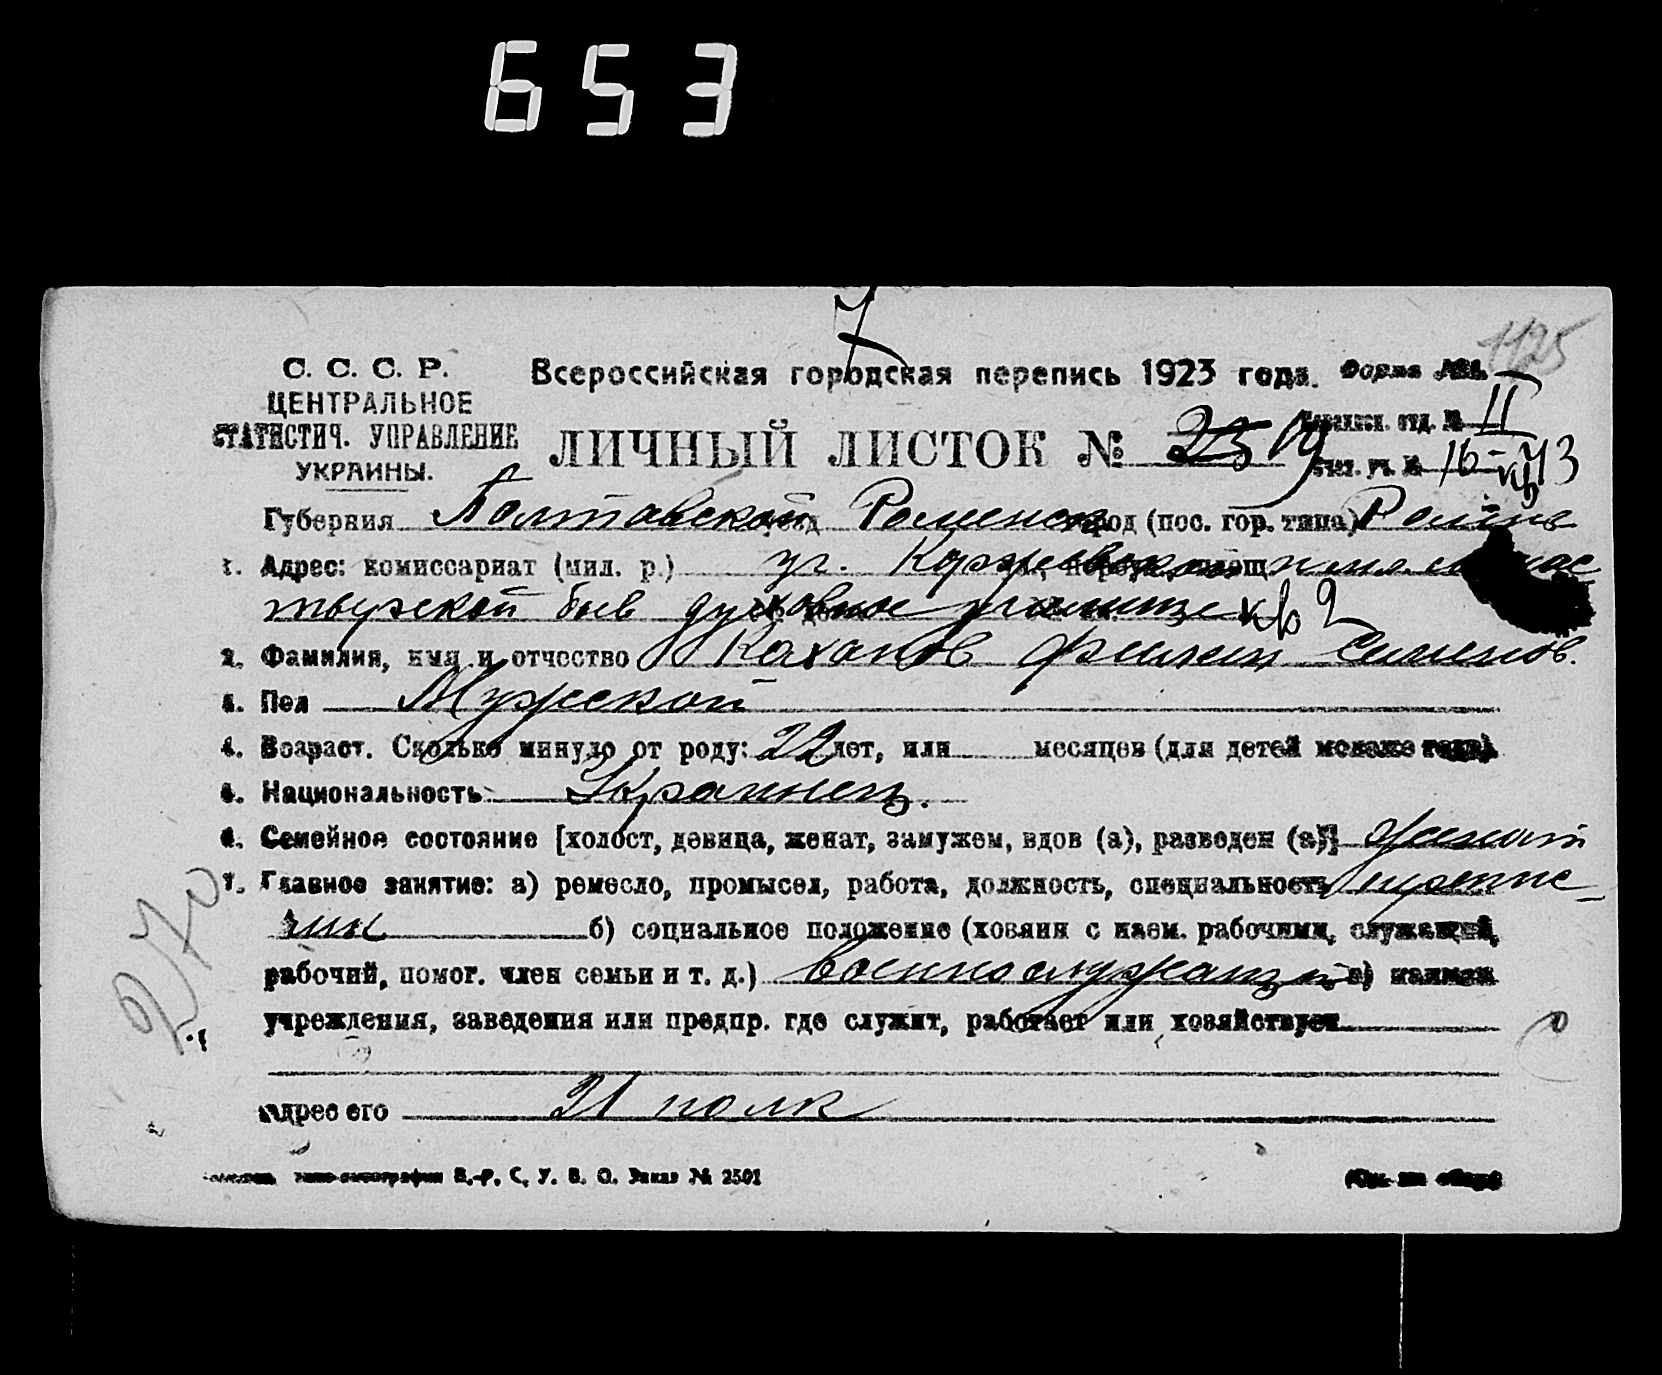 653
7
1125
С. С. С. Р.
ЦЕНТРАЛЬНОЕ
СТАТИСТИЧ. УПРАВЛЕНИЕ
УКРАИНЫ.
Всероссийская городская перепись 1923 года. Форма №
ЛИЧНЫЙ ЛИСТОК № 19
отд. № II
уч. № 16-
Губерния Полтавской Роменск город (пос. гор. типа) Ромны
1. Адрес: комиссариат (мил. р.) уг.
быв духовное училище кв 2
2. Фамилия, имя и отчество Каханов Филипп Семенов.
3. Пол Мужской
4. Возраст. Сколько минуло от роду: 22 лет, или месяцев (для детей моложе года)
5. Национальность Украинец.
6. Семейное состояние [холост, девица, женат, замужем, вдов (а), разведен (а)] женат
7. Главное занятие: а) ремесло, промысел, работа, должность, специальность
б) социальное положение (хозяин с наем. рабочими, служащий,
рабочий, помог. член семьи и т. д.) военнослужащий в) наимен
учреждения, заведения или предпр. где служит, работает или хозяйствует
270
адрес его 21 полк
В.-Р. С. У. В. О. Заказ № 2501